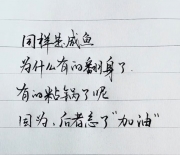 同样是咸鱼
为什么有的翻身了
有的粘锅了呢
因为，后者忘了“加油”